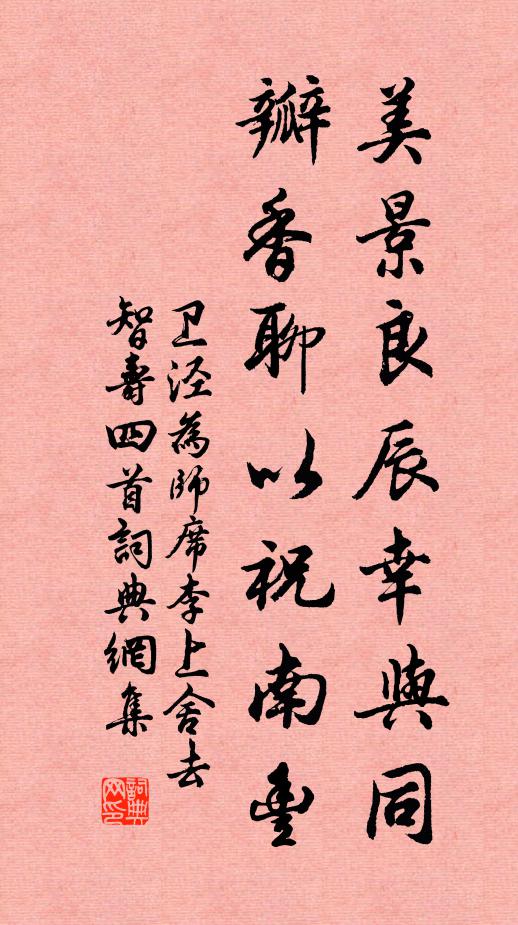 美景良辰幸與同
瓣香聊以祝南豐
卫泾為師席李上舍去
智壽四首詞典網集
詞典网印